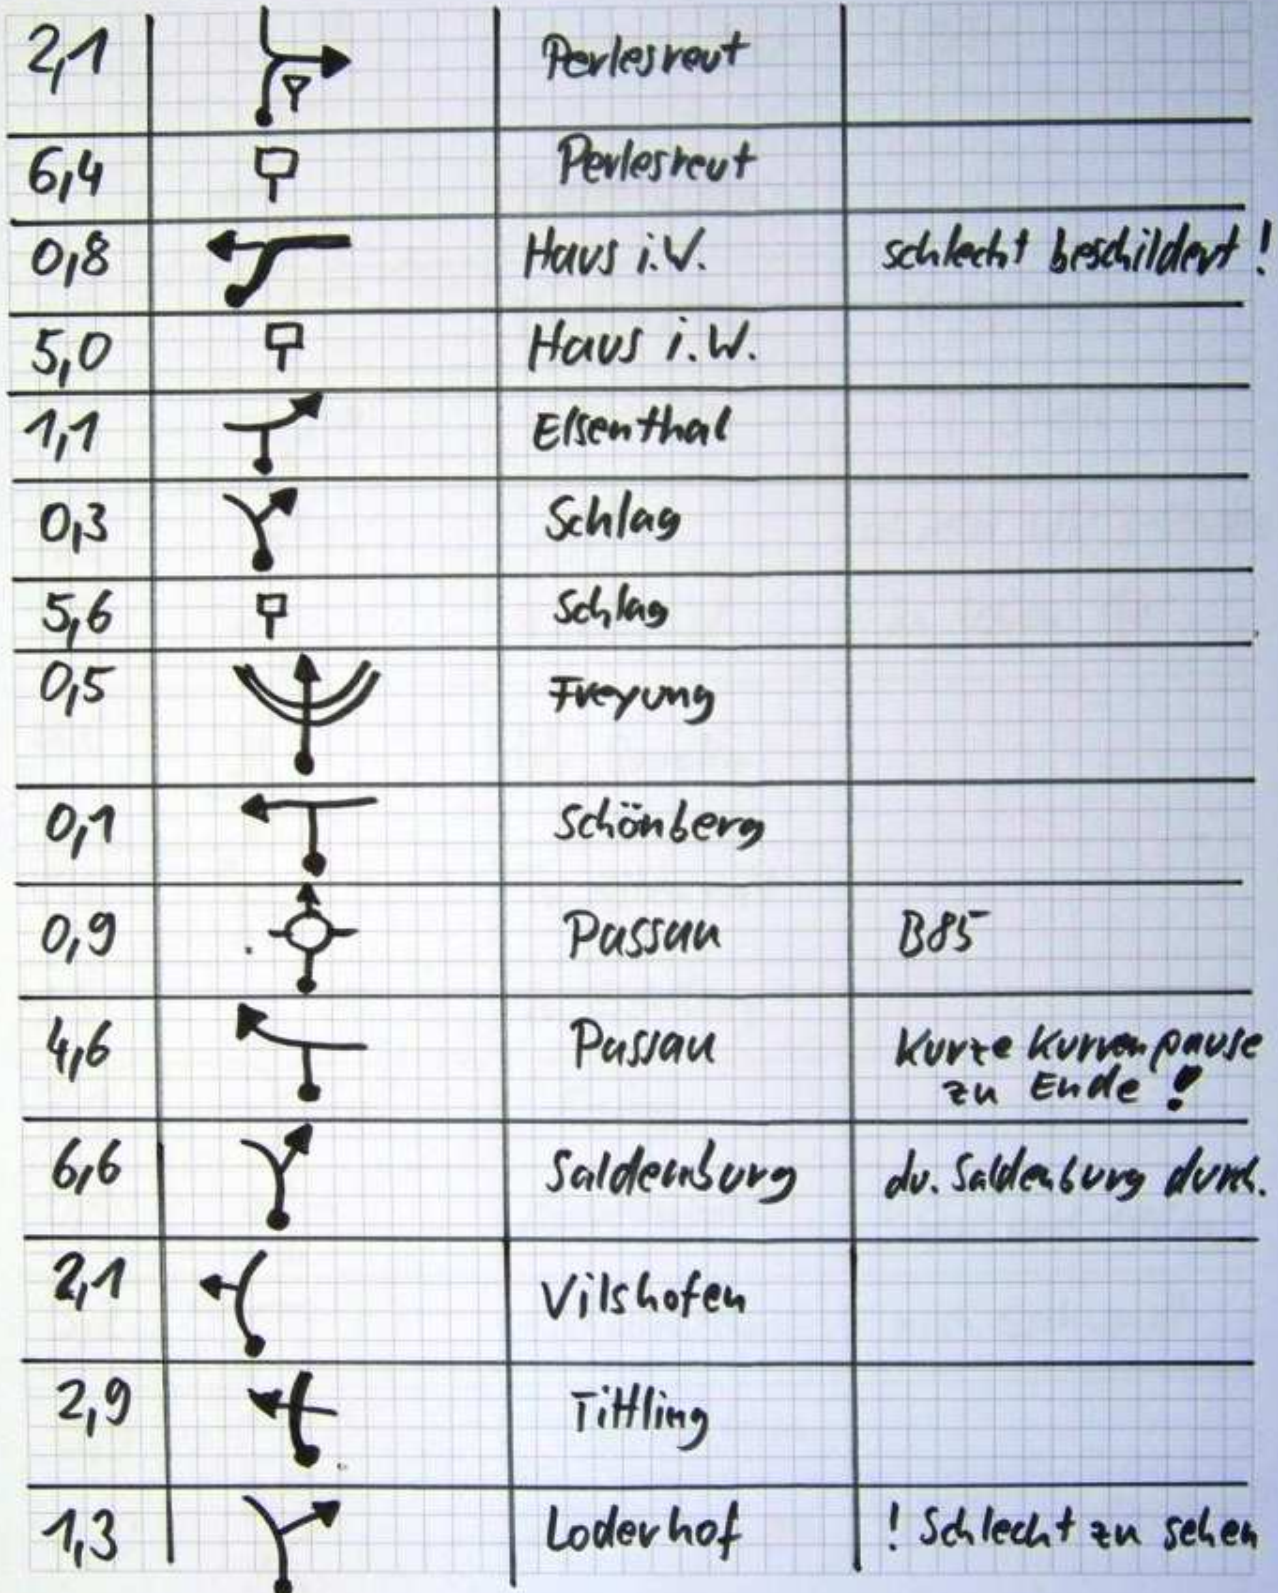 2,1 Perlesreut
6,4 Perlesreut
0,8 Haus i.W. schlecht beschildert!
5,0 Haus i.W.
1,1 Elsenthal
0,3 Schlag
5,6 Schlag
0,5 Freyung
0,1 Schönberg
0,9 Passau B85
4,6 Passau Kurze Kurvenpause
zu Ende!
6,6 Saldenburg du. Saldenburg durch.
2,1 Vilshofen
2,9 Tittling
1,3 Loderhof ! Schlecht zu sehen